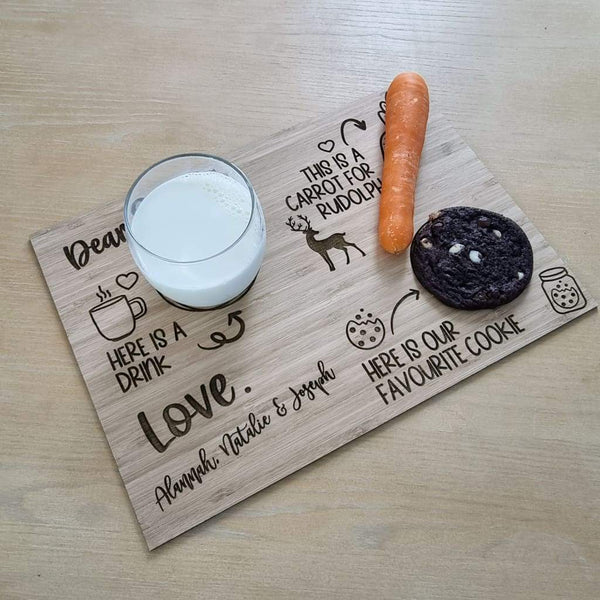 Dear
THIS IS A
CARROT FOR
RUDOLPH
HERE IS A
DRINK
HERE IS OUR
FAVOURITE COOKIE
Love.
Alannah, Natalie & Joseph